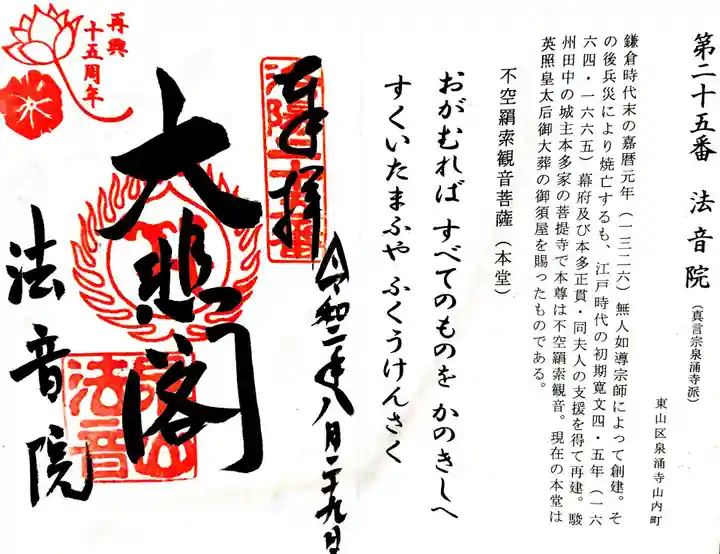 第二十五番 法音院(真言宗泉涌寺派)
東山区泉涌寺山内町
鎌倉時代末の嘉暦元年(一三二六)無人如導宗師によって創建。そ
の後兵災により焼亡するも、江戸時代の初期寛文四・五年(一六
六四・一六六五)幕府及び本多正貫・同夫人の支援を得て再建。駿
州田中の城主本多家の菩提寺で本尊は不空羂索観音。現在の本堂は
英照皇太后御大葬の御須屋を賜ったものである。
不空羂索観音菩薩(本堂)
おがむれば すべてのものを かのきしへ
すくいたまふや ふくうけんさく
奉拝
令和二年八月二十九日
大悲閣
法音院
再興
十五周年